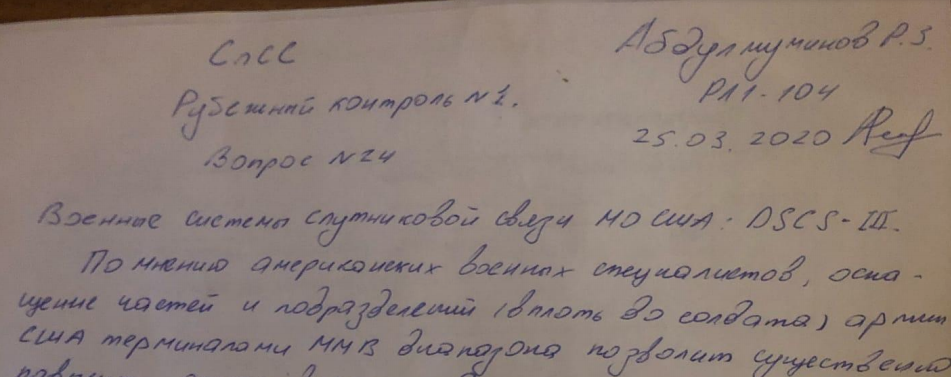 СпСС
Абдулмуминов Р.З.
РЛ1-104
Рубежный контроль №1.
25.03.2020
Вопрос №24
Военные системы спутниковой связи МО США: DSCS-III.
По мнению американских военных специалистов, осна-
щение частей и подразделений (вплоть до солдата) армии
США терминалами ММВ диапазона позволит существенно